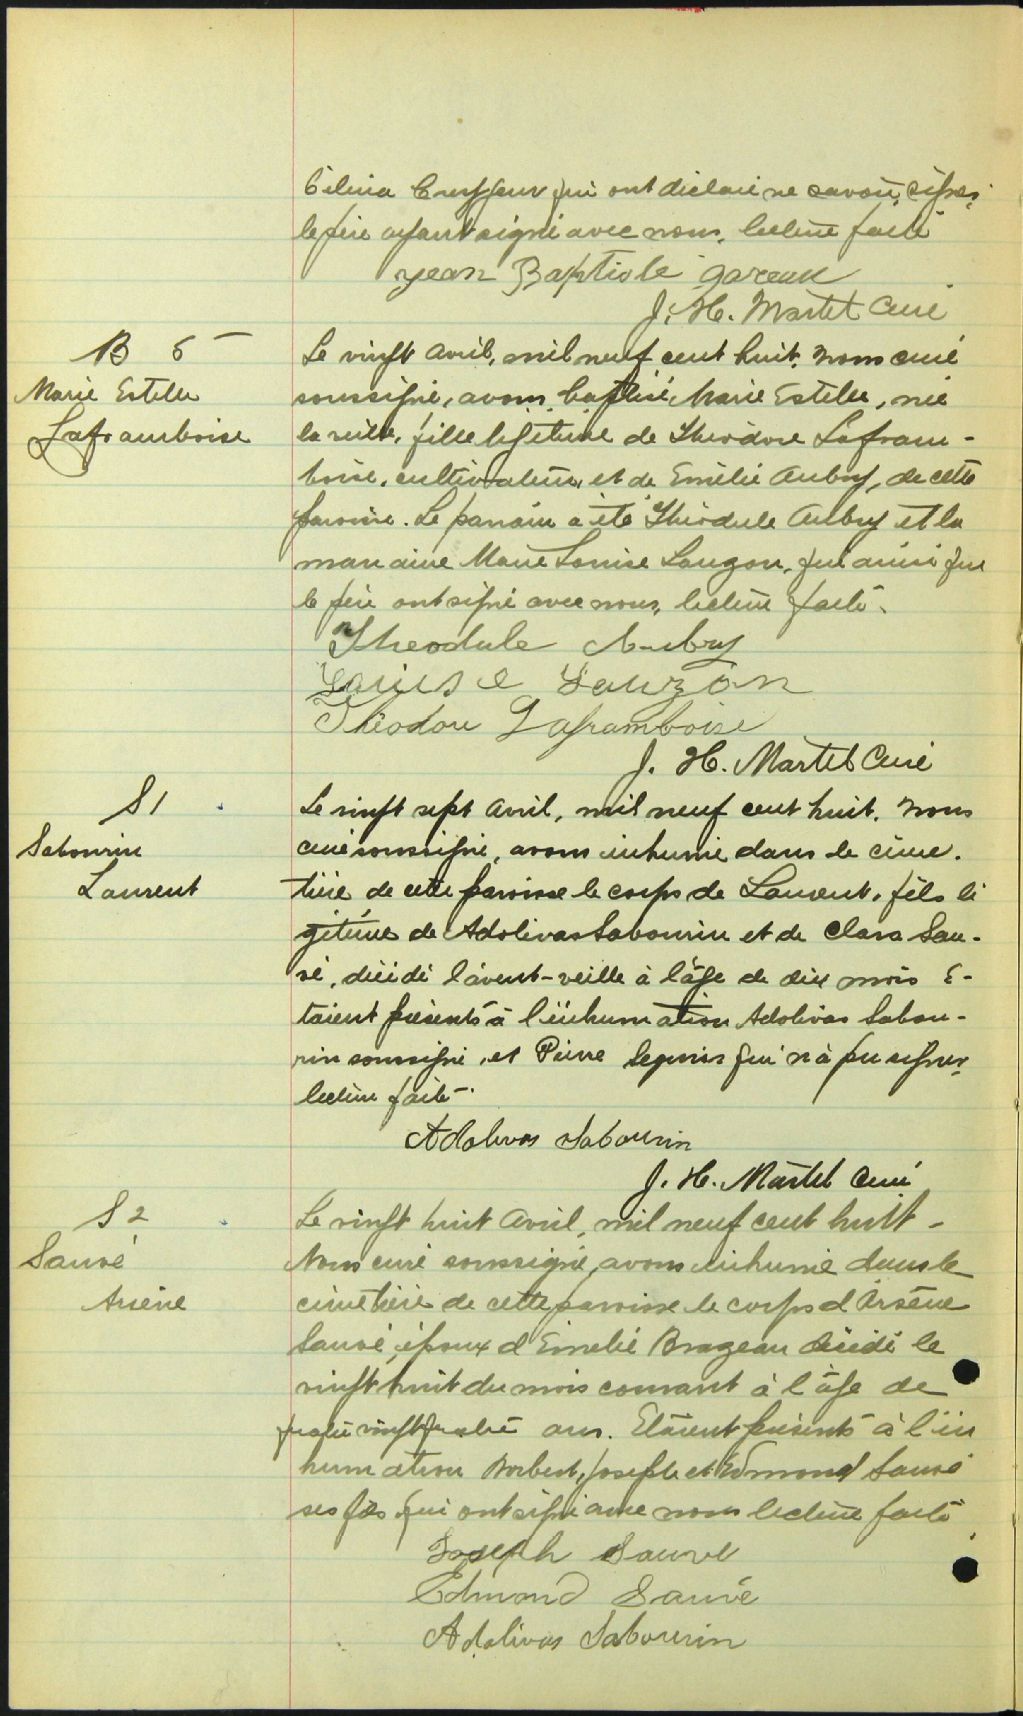 qui ont déclaré ne savoir signer,
le père ayant signé avec nous, lecture faite
Jean Baptiste Gareau
J. H. Martel Curé
B 5
Marie Estelle
Laframboise
Le vingt avril, mil neuf cent huit, nous curé
soussigné, avons baptisé, Marie Estelle, née
la veille, fille légitime de Théodore Lafram-
boise, cultivateur, et de Emélie Aubry, de cette
paroisse. Le parrain a été Théodule Aubry et la
marraine Marie Louise Lauzon, qui ainsi que
le père ont signé avec nous, lecture faite.
Theodule Aubry
Louise Lauzon
Théodore Laframboise
J. H. Martel Curé
S 1
Sabourin
Laurent
Le vingt sept avril, mil neuf cent huit, nous
curé soussigné, avons inhumé dans le cime-
tière de cette paroisse le corps de Laurent, fils lé
gitime de Adolivas Sabourin et de Clara Sau-
vé, décédé l'avant-veille à l'âge de dix mois E-
taient présents à l'inhumation Adolivas Sabou-
rin soussigné, et Pierre qui n'a pu signer,
lecture faite.
Adolivas Sabourin
J. H. Martel Curé
S 2
Sauvé
Arsène
Le vingt huit avril, mil neuf cent huit -
Nous curé soussigné, avons inhumé dans le
cimetière de cette paroisse le corps d'Arsène
Sauvé, époux d'Emelie Brazeau décédé le
vingt huit du mois courant à l'âge de
quatre vingt quatre ans. Etaient présents à l'in
humation Norbert, Joseph et Edmond Sauvé
ses fils qui ont signé avec nous lecture faite
Joseph Sauvé
Edmond Sauvé
Adolivas Sabourin